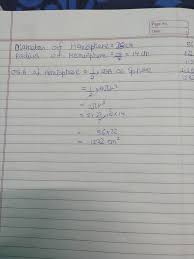 Page No.
Date
Diameter of Hemisphere = 28 cm
Radius of Hemisphere = 28/2 = 14 cm
CSA of Hemisphere = 1/2 CSA of Sphere
= 1/2 4πr²
= 2πr²
= 2 × 22/7 × 14 × 14
= 56×22
= 1232 cm²